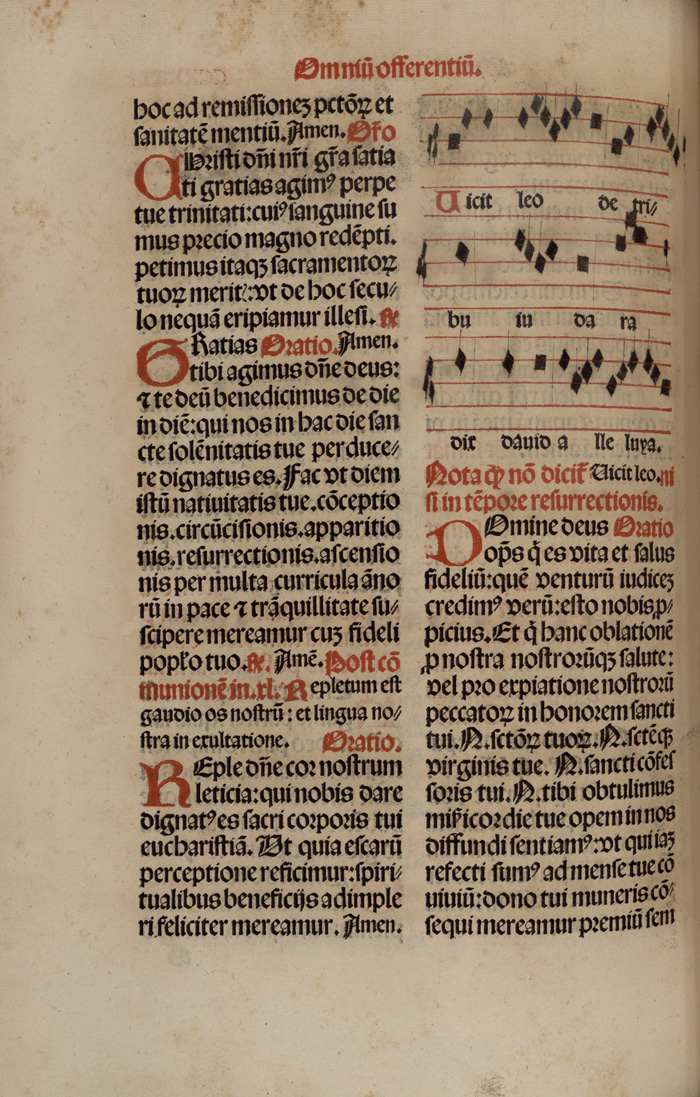 Omniū offerentiū.
hoc ad remissionez pctõꝝ et
sanitatē mentiū. Amen. Oro
CHristi dñi nr̄i gr̃a satia
ti gratias agimꝰ perpe
tue trinitati: cuiꝰ sanguine su
mus precio magno redēpti.
petimus itaqꝫ sacramentoꝝ
tuoꝝ merit᷒: vt de hoc secu⸗
lo nequā eripiamur illesi. ℟
GRatias Oratio. Amen.
tibi agimus dñe deus:
⁊ te deū benedicimus de die
in diē: qui nos in hac die san
cte solēnitatis tue perduce⸗
re dignatus es. Fac vt diem
istū natiuitatis tue. cōceptio
nis. circūcisionis. apparitio
nis. resurrectionis. ascensio
nis per multa curricula āno
rū in pace ⁊ trāquillitate su⸗
scipere mereamur cuꝫ fideli
poplo tuo. ℟. Amē. Post cō
munionē in. xl. Repletum est
gaudio os nostrū: et lingua no⸗
stra in exultatione. Oratio.
REple dñe cor nostrum
leticia: qui nobis dare
dignatꝰ es sacri corporis tui
eucharistiā. Ut quia escarū
perceptione reficimur: spiri⸗
tualibus beneficijs adimple
ri feliciter mereamur. Amen.
Uicit leo de tri⸗
bu iu da ra
dix dauid a lle luya.
Nota qꝫ nō dicit̃ Uicit leo. ni
si in tēpore resurrectionis.
DOmine deus Oratio
op̄s q̇ es vita et salus
fideliū: quē venturū iudiceꝫ
credimꝰ verū: esto nobis ꝓ⸗
picius. Et q̇ hanc oblationē
ꝓ nostra nostrorūqꝫ salute:
vel pro expiatione nostrorū
peccatoꝝ in honorem sancti
tui. N. sctōꝝ tuoꝝ. N. sctēqꝫ
virginis tue. N. sancti cōfes
soris tui. N. tibi obtulimus
mis̃icordie tue opem in nos
diffundi sentiamꝰ: vt qui iaꝫ
refecti sumꝰ ad mense tue cō
uiuiū: dono tui muneris cō⸗
sequi mereamur premiū sem